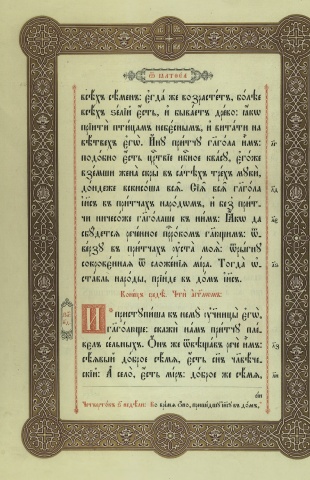 Ѿ МАТѲЕА
всѣхъ сѣменъ: єгда же возрастетъ, болѣе
всѣхъ ѕелій єсть, и бываетъ древо: ꙗкѡ
прїити птицамъ небєснымъ, и витати на
вѣтвехъ єгѡ. Ину притчу гл҃гола имъ:
подобно єсть цр҃твіе нб҃ное квасу, єгоже
вземши жена скры въ сатѣхъ трехъ муки,
дондеже вскисоша вся. Сія вся гл҃гола
іи҃съ въ притчахъ народѡмъ, и без прит-
чи ничесоже гл҃голаше къ нимъ: Ꙗкѡ да
сбудется реченное прⷪ҇рокомъ гл҃ющимъ: ѿ-
верзу въ притчахъ уста моя: ѿрыгну
сокровенная ѿ сложенія міра. Тогда ѡ-
ставль народы, прїиде въ домъ іи҃съ.
Конецъ недѣ.
И приступиша къ нему ученицы єгѡ,
гл҃голюще: скажи намъ притчу пле-
велъ сельныхъ. Онъ же ѿвѣщавъ рече имъ:
сѣявый доброе сѣмя, єсть сн҃ъ чл҃вѣче-
скій: А село, єсть міръ: доброе же сѣмя,
сіи
Четвертокъ ѕ҃ недѣли: Во время ѻно, пришедшу іи҃су въ домъ,